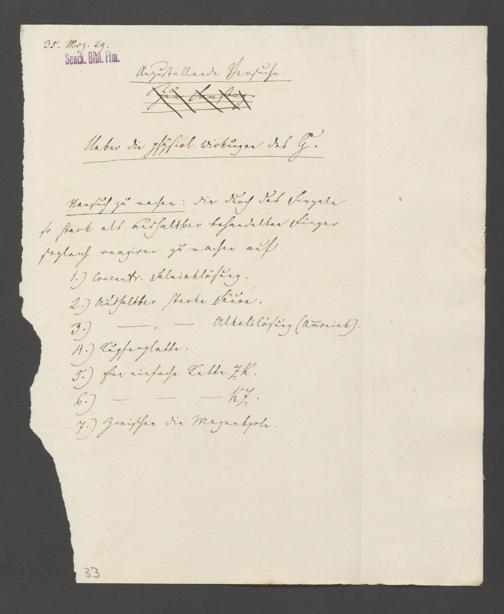 35. Mrz. 29.
Senck. Bibl. Ffm.
Anzustellende Versuche.
Ueber die physiol. Wirkungen des G.
Versuch zu machen: die durch das
so stark als aushaltbar behandelten Finger
sogleich reagiren zu machen auf
1.) Concentr. lösung.
2.) Aushaltbar starke Säure.
3.) — „ — Alkalilösung (Ammoniak).
4.) Kupferplatte.
5.) Eine einfache Kette ZK.
6.) — — — KZ.
7.) Zwischen die Magnetpole.
33